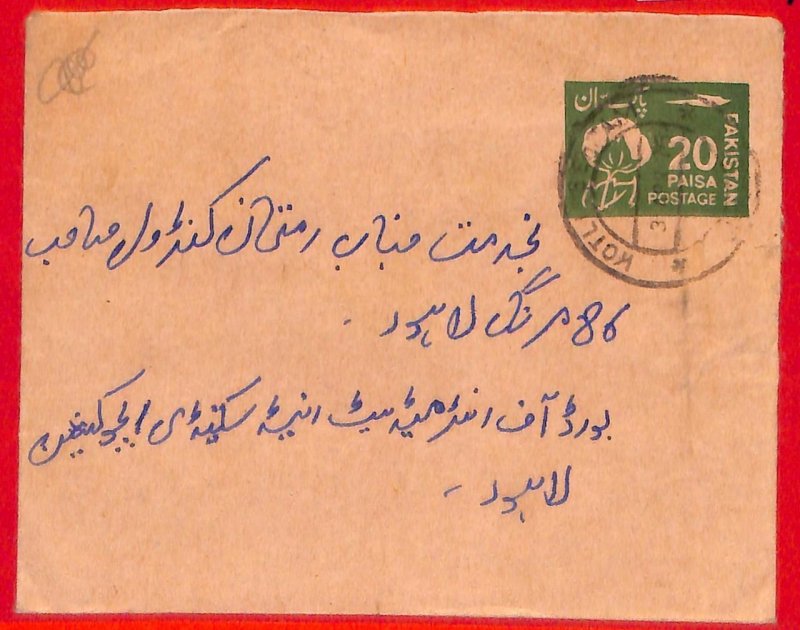 پاکستان
PAKISTAN
20
PAISA
POSTAGE
KOTL
بخدمت جناب امتحان کنٹرولر صاحب
86 مزنگ لاہور ۔
بورڈ آف انٹرمیڈیٹ اینڈ سکینڈری ایجوکیشن
لاہور ۔